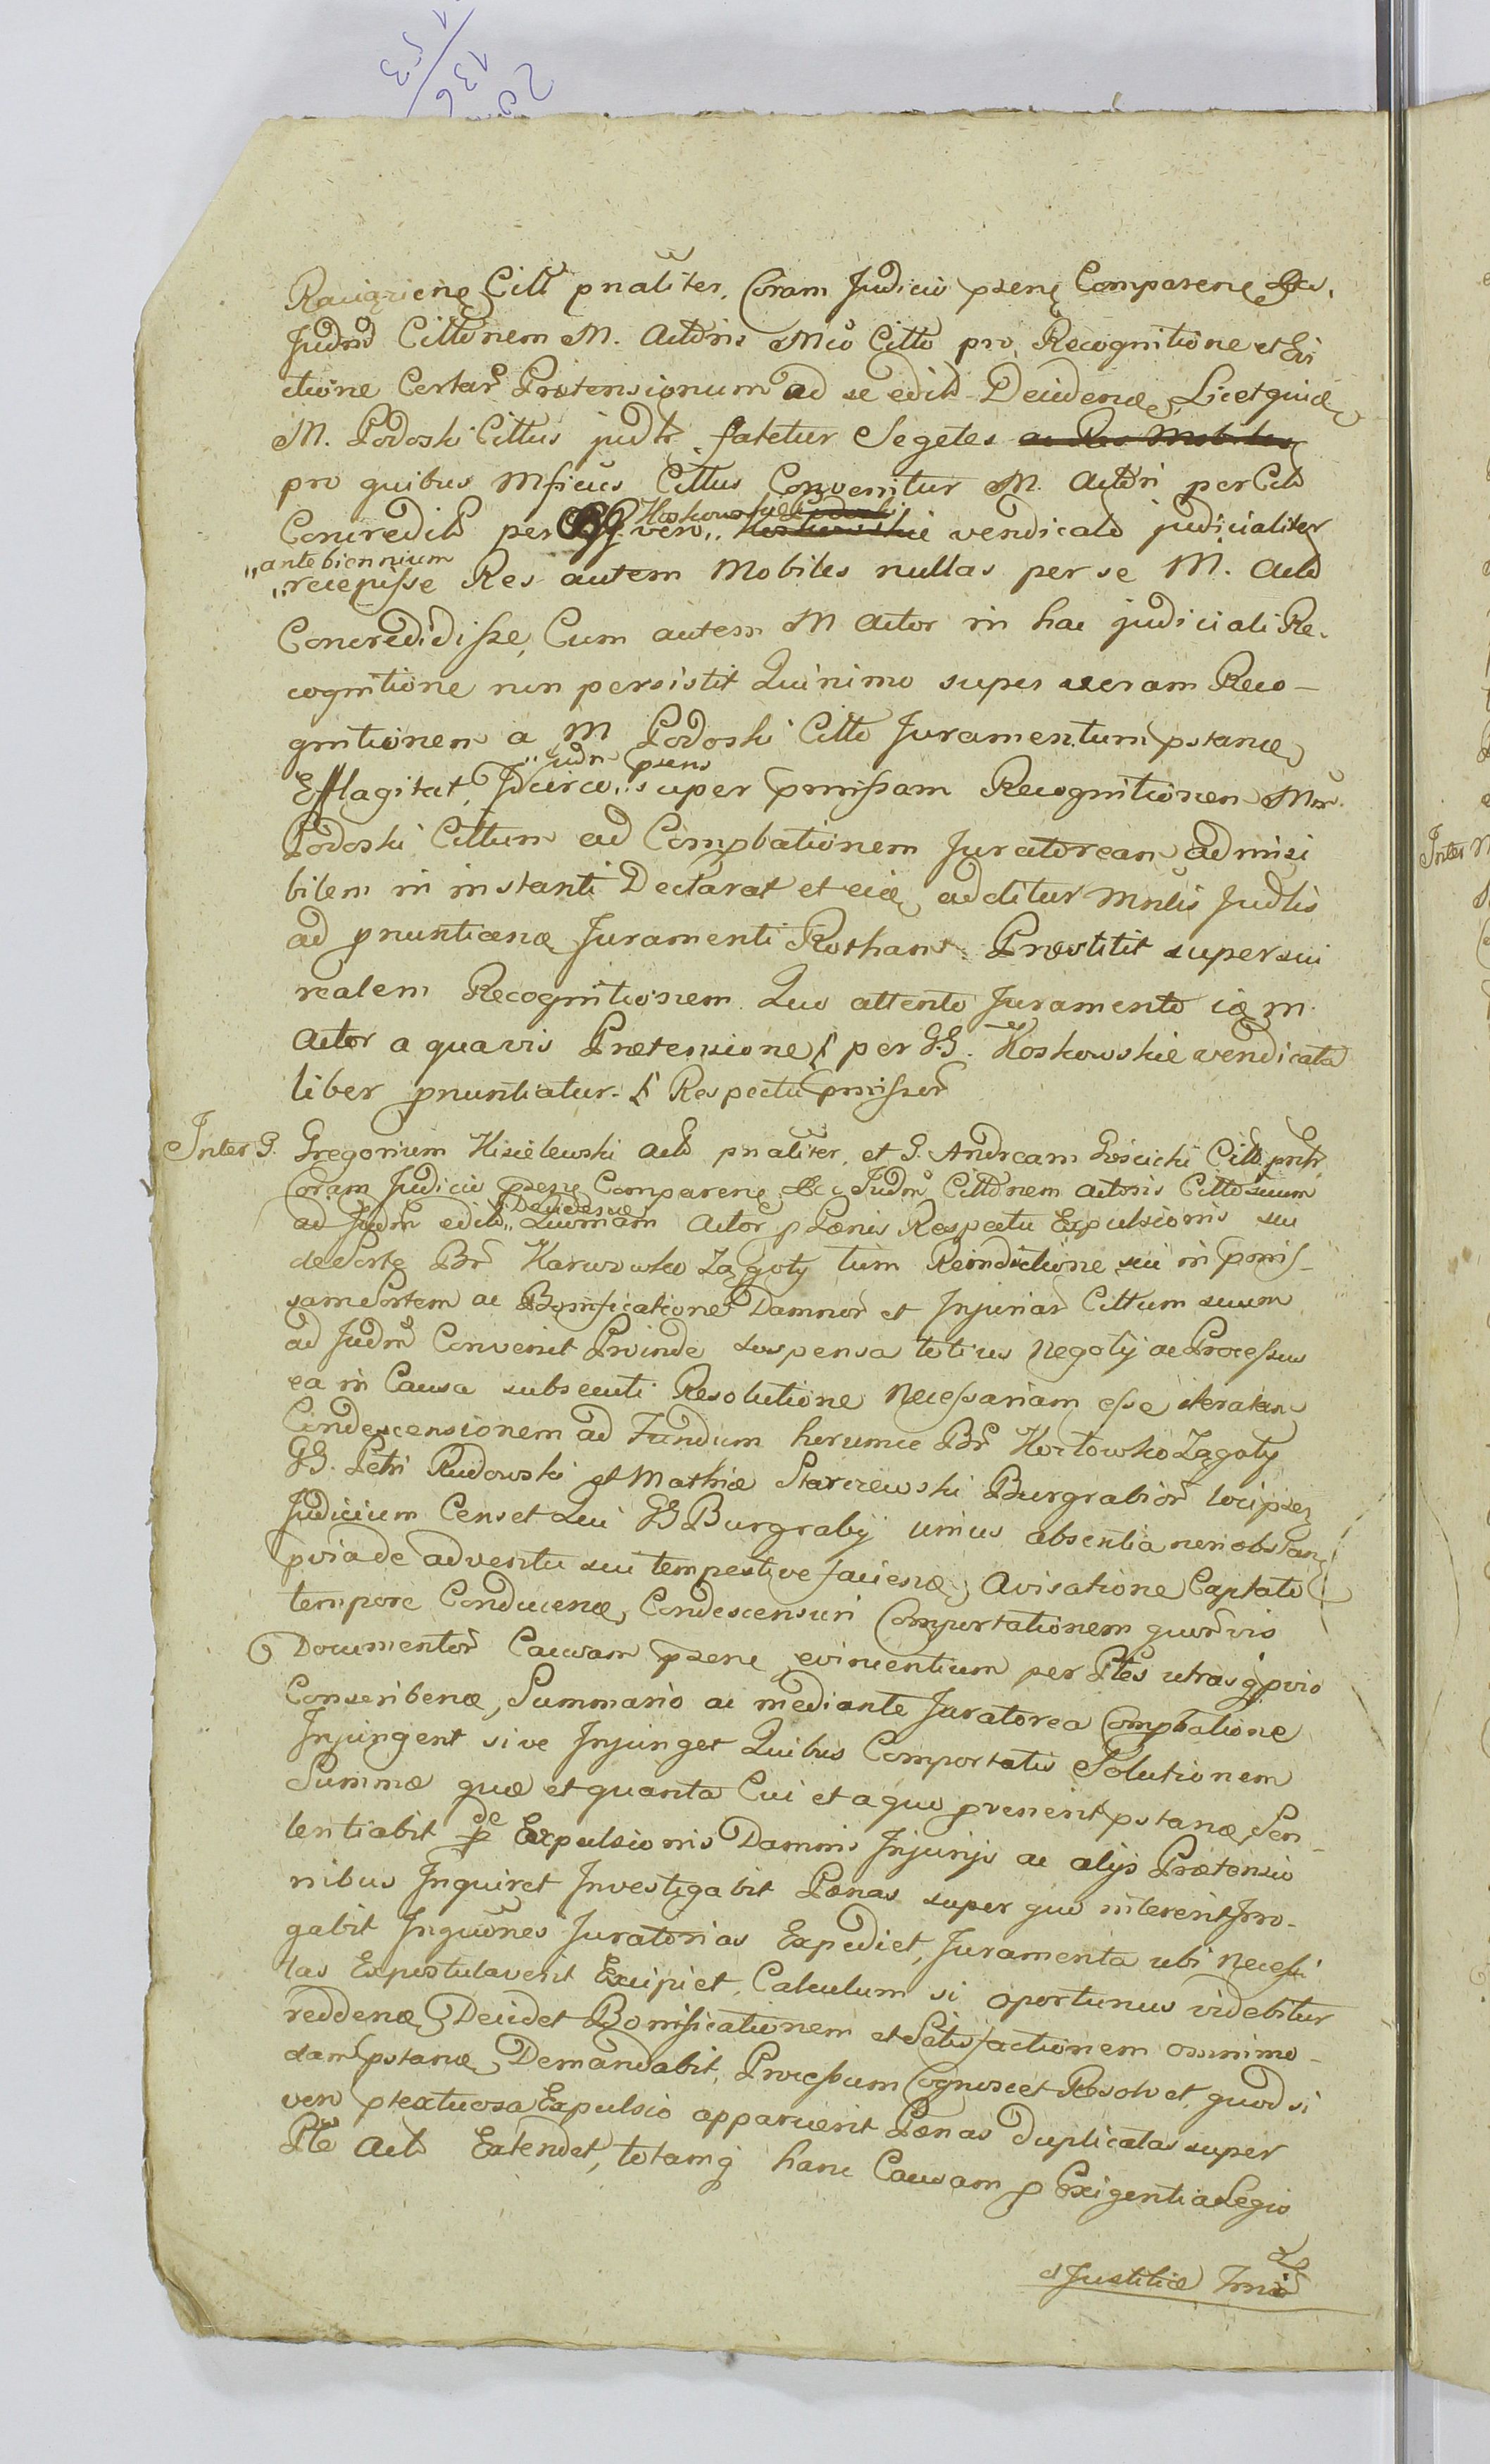 Citt pnaliter. Coram Judicio psene Comparene &c.
Judm Cittonem M. Actoris Mco Citto pro Recognitione et Evi
ctione Certar Prætensionum ad se edit Deciden Licet quid
M. Podoski Cittus judtr fatetur Segetes ac Res Mobiles
pro quibus Mficus Cittus Convenitur M. Actori per Citt
Concredit per GG. vero Koskowskie vendicato judicialiter
ante biennium
recepisse Res autem Mobiles nullas per se M. Acto
Concredidisse, Cum autem M Actor in hac judiciali Re-
cognitione non persistit Quinimo super veram Reco-
gnitionem a M Podoski Citto Juramentum pstanæ
Judm psens
Efflagitat, Idcirco super pmissam Recognitionem Mm
Podoski Cittum ad Compbationem Juratoream admisi
bilem in instanti Declarat et additur Mnlis Judlis
ad pnuntianæ Juramenti Rotham. Præstitit super sui
realem Recognitionem Quo attento Juramento M.
Actor a quavis Prætensione per GG. Koskowskie vendicata
liber pnuntiatur. Respectu pmissor
Inter G. Gregorium Kisielewski Act pnaliter, et G. Andream Gościcki Citt pnlr
Coram Judicio psene Comparene &c. Judm Cittonem Actoris Citto suum
Decidenæ
ad Judm edit Quoniam Actor p Pænis Respectu Expulsionis sui
de Sorte Br Karwowko Zagoty tum Reinductione sui in pmis-
sam Sortem ac Bonificatione Damnor et Injuriar Cittum suum
ad Judm Convenit Proinde suspensa totius Negotij ac Processus
ea in Causa subsecuti Resolutione Necessariam esse iteratam
Condescensionem ad Fundum horumce Br Zagoty
GG. Petri Rudowski et Mathiæ Starczewski Burgrabior loci psen
Judicium Censet Qui GG Burgrabij unius absentia non obstan
pvia de adventu sui tempestive facienæ Avisatione Captato
tempore Conducenæ, Condescensuri Comportationem quorvis
Documentor Causam psene evincentium per Ptes utrasq pvio
Conscribenæ, Summario ac mediante Juratorea Compbatione
Injungent sive Injunget Quibus Comportatis Solutionem
Summæ quæ et quanta Cui et a quo pvenerit pstanæ Sen-
tentiabit de Expulsionis Damnis Injurijs ac alijs Prætensio
nibus Inquiret Investigabit Pænas super quo inter erit Irro-
gabit Inquones Juratorias Expediet, Juramenta ubi Necessi
tas Expostulaverit Excipiet, Calculum si oportunus videbitur
reddenæ Decidet Bonificationem et Satisfactionem omnimo-
dam pstanæ Demandabit, Processum Cognoscet Resolvet, quod si
vero ptextuosa Expulsio apparuerit Pænas Duplicatas super
Pte Act Extendet, totamq hanc Causam p Exigentia Legis
et Justitiæ